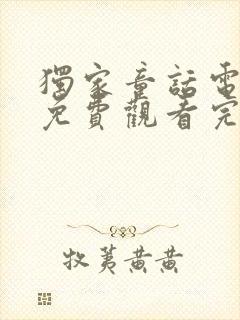 獨家童話電
免費觀看完
牧荑黃黃